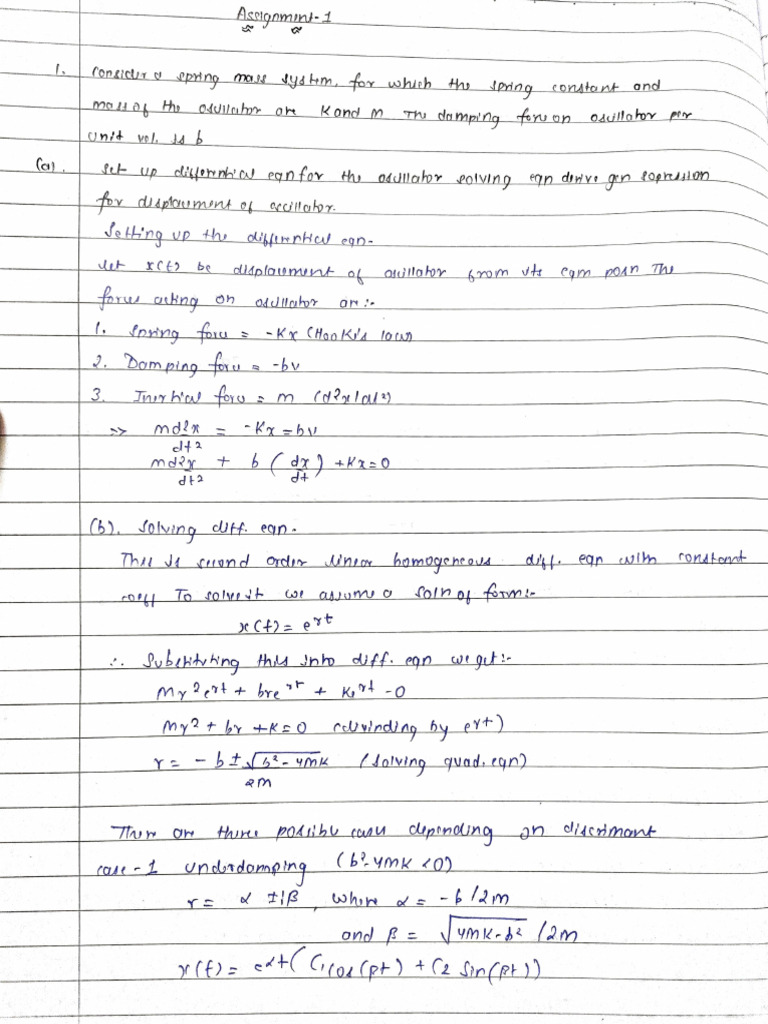 Assignment-1
1. Consider a spring mass system, for which the spring constant and
mass of the oscillator are K and M The damping force on oscillator per
unit vol. is b
(a). Set up differential eqn for the oscillator solving eqn derive gen expression
for displacement of oscillator.
Setting up the differential eqn-
Let x(t) be displacement of oscillator from its eqm posn The
forces acting on oscillator are:-
1. Spring force = -Kx (Hooke's law)
2. Damping force = -bv
3. Inertial force = m (d²x/dt²)
=> md²x/dt² = -Kx = bv
md²x/dt² + b (dx/dt) + Kx = 0
(b). Solving diff. eqn.
This is second order linear homogeneous diff. eqn with constant
coeff To solve it we assume a soln of form:-
x(t) = e^rt
∴ Substituting this into diff. eqn we get:-
Mr²e^rt + bre^rt + Ke^rt - 0
Mr² + br + K = 0 (divinding by e^rt)
r = - b ± √b² - 4MK / 2M (solving quad. eqn)
There are three possible cases depending on discrimant
case-1 underdamping (b²-4MK < 0)
r = α ± iβ, where α = -b/2M
and β = √4MK-b² /2M
x(t) = e^αt (C₁cos(βt) + C₂ Sin(βt))